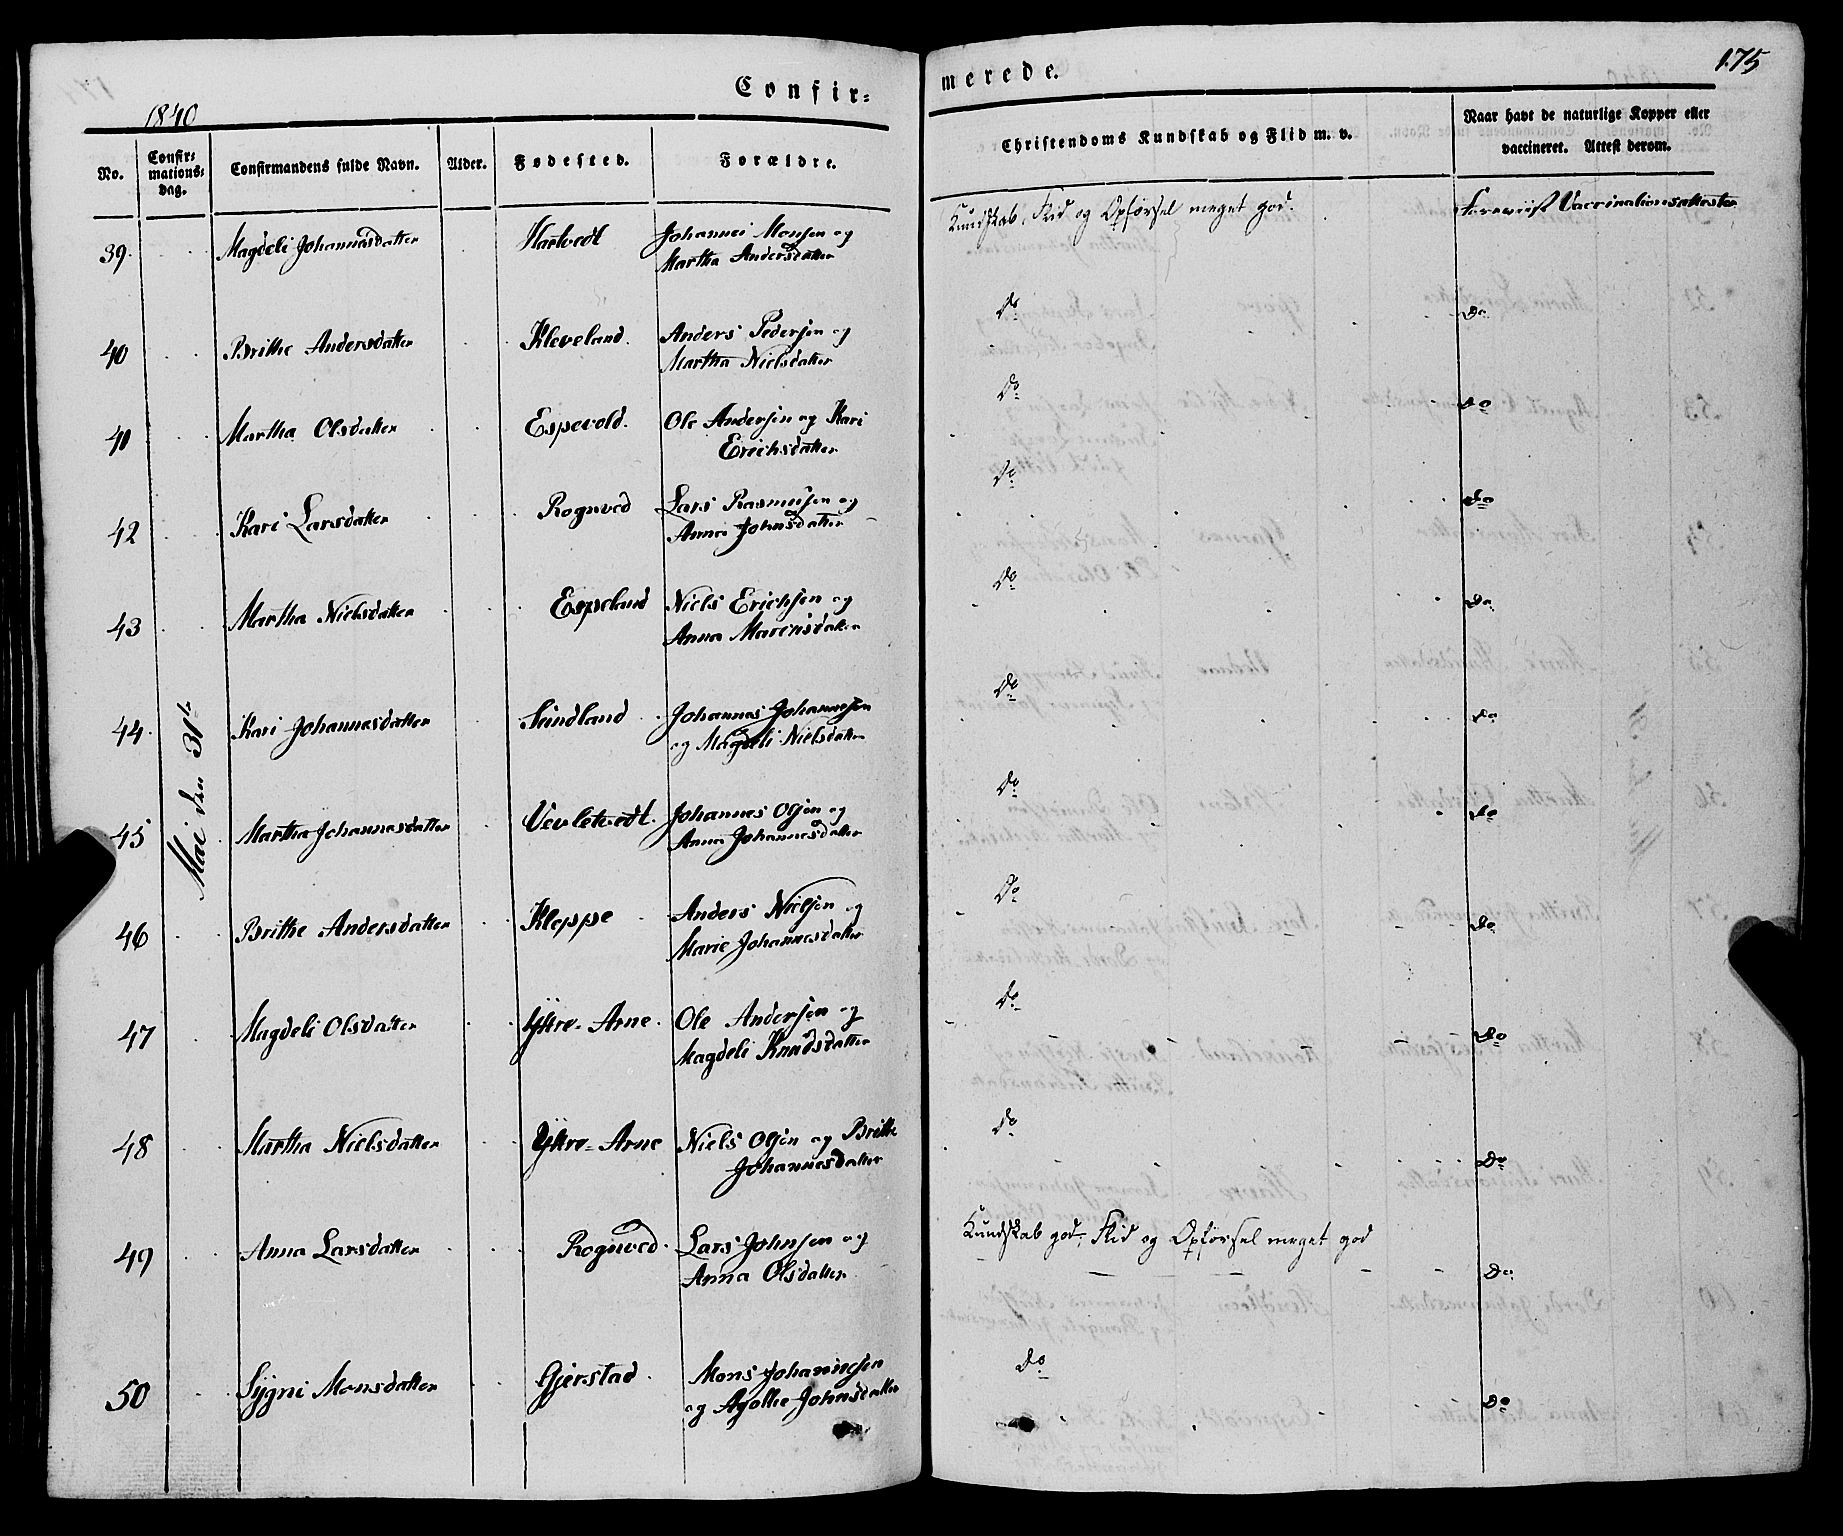 175
Confir= merede.
1840
No. Confir= mations= dag. Confirmandens fulde Navn. Alder. Fødested. Forældre. Christendoms Kundskab og Flid m. v. Naar havt de naturlige Kopper eller vaccineret. Attest derom.
Mai den 31te
39. Magdeli Johannesdatter Hartvedt Johannes Monsen og Kundskab, Flid og Opførsel meget god. Foreviist Vaccinationsattester
Martha Andersdatter
40 Brithe Andersdatter Kleveland. Anders Pedersen og Do Do
Martha Nielsdatter
41 Martha Olsdatter Espevold. Ole Andersen og Kari Do Do
Erichsdatter
42 Kari Larsdatter Rognved Lars Rasmusen og Do Do
Anna Johnsdatter
43 Martha Nielsdatter Espeland Niels Erichsen og Do Do
Anna Marcusdatter
44. Kari Johannesdatter Seindland Johannes Johannesen Do Do
og Magdeli Nielsdatter
45 Martha Johannesdatter Vevletvedt. Johannes Olsen og Do Do
Anna Johannesdatter
46 Brithe Andersdatter Kleppe Anders Nielsen og Do Do
Marie Johannesdatter
47 Magdeli Olsdatter Yttre-Arne. Ole Andersen og Do Do
Magdeli Knudsdatter
48 Martha Nielsdatter Yttre-Arne Niels Olsen og Brithe Do Do
Johannesdatter
49 Anna Larsdatter Rognved. Lars Johnsen og Kundskab god, Flid og Opførsel meget god Do
Anna Olsdatter
50 Sygni Monsdatter Gjerstad. Mons Johannesen Do Do
og Johnsdatter